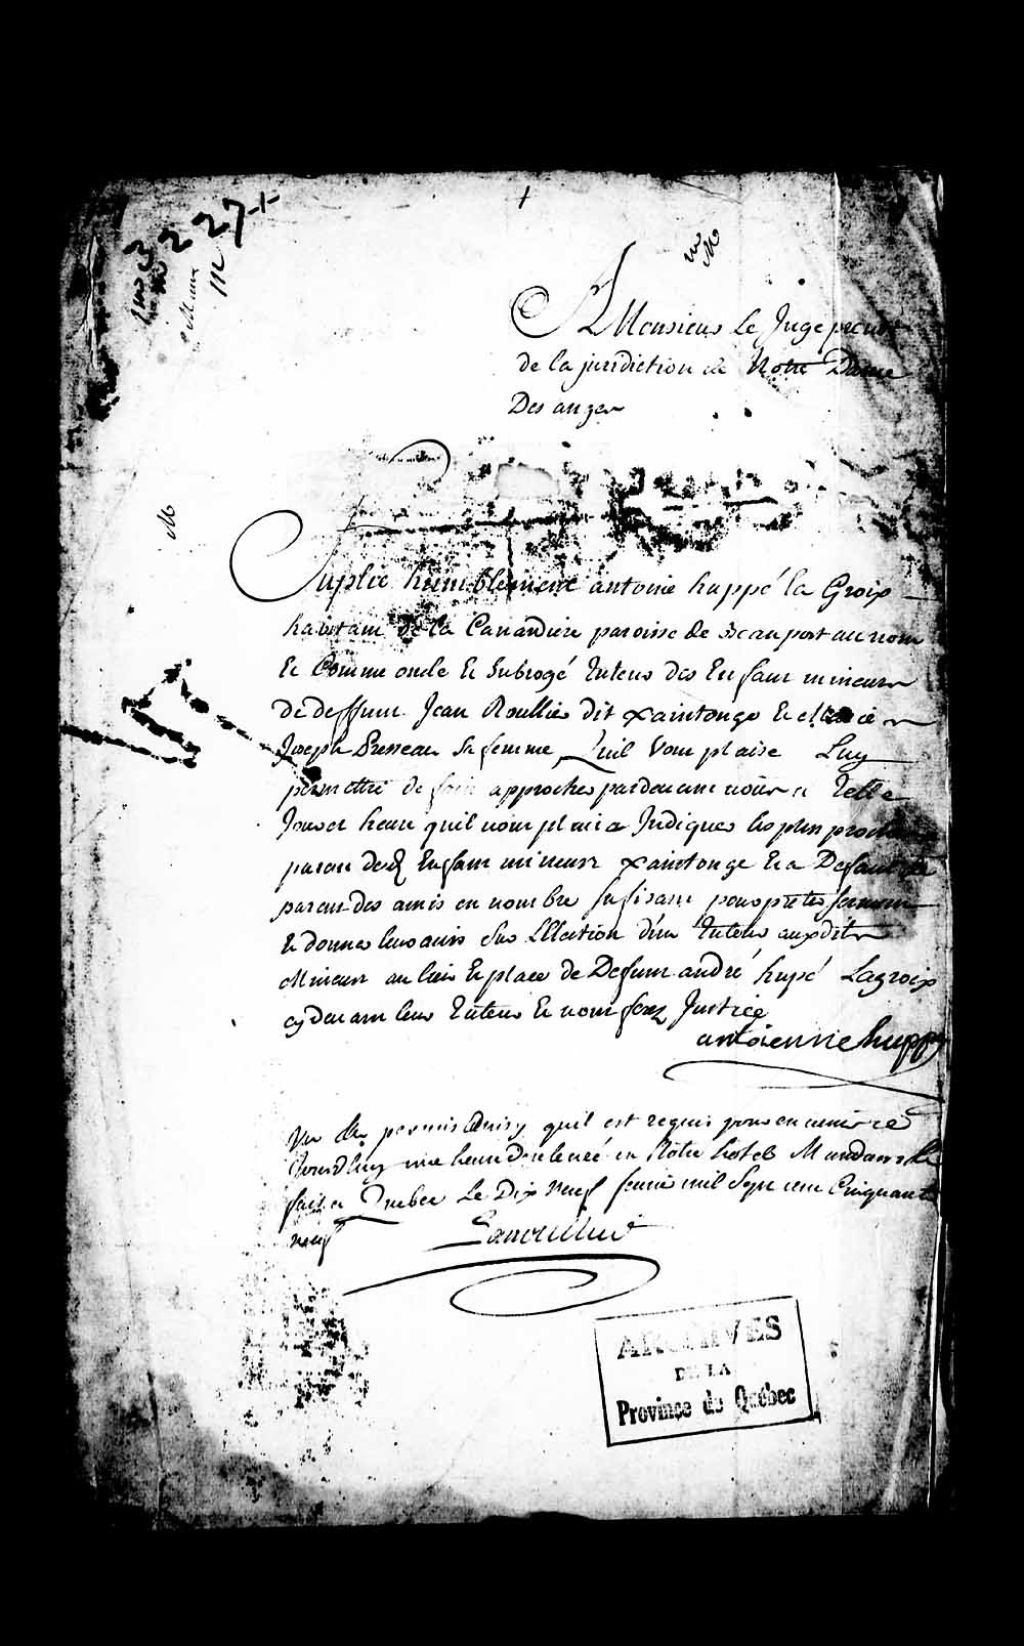 3227
A Monsieur Le Juge prevost
de la jurisdiction de Notre Dame
Des anges
Suplie humblement antoine huppé la Groix
habitant de la Canardiere paroisse de Beauport au nom
Et Comme oncle Et Subrogé Tuteur des Enfant mineurs
De deffunt Jean Roullier dit xaintonge Et Marie
Joseph Presseau Sa femme Quil Vous plaise Luy
permettre de faire approcher pardevant vous a Telle
Jour et heure quil vous plaira Indiquer les plus proches
parent desd Enfant mineurs xaintonge Et a Defaut de
parent des amis en nombre sufisant pour preter serment
Et donner leurs avis Sur L'Election d'un Tuteur auxdits
Mineurs au lieu Et place de Defunt andré hupé Lagroix
cy devant leur Tuteur Et vous ferez Justice
antoienne hupp
Vu permis ainsy quil est requis pour en venir ce
Jourdhuy une heure de relevée en Notre hotel Mandons
fait a Quebec Le Dix neuf fevrier mil Sept cent Cinquante
neuf Lanoullier
ARCHIVES
DE LA
Province de Québec